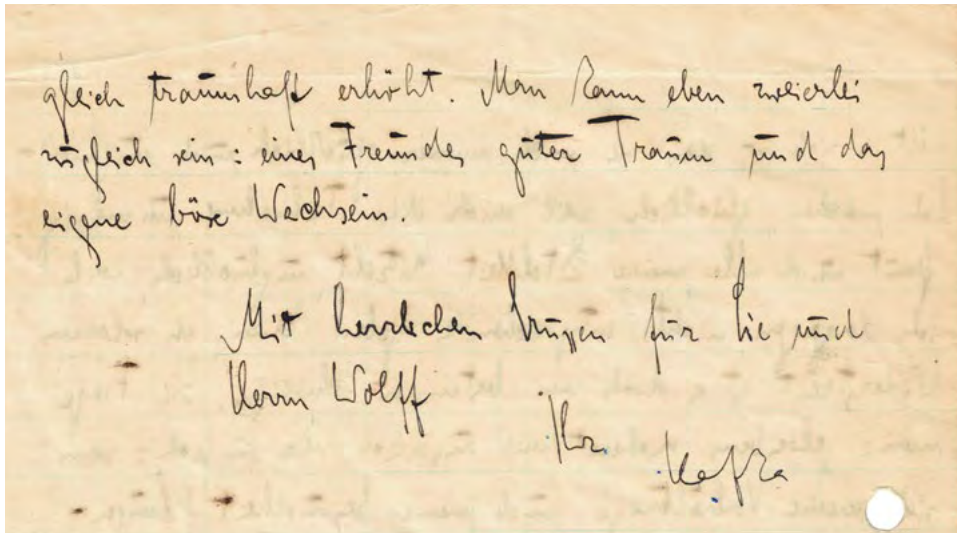 gleich traumhaft erhöht. Man kann eben zweierlei
zugleich sein: eines Freundes guter Traum und das
eigene böse Wachsein.
Mit herzlichen Grüssen für Sie und
Herrn Wolff
Ihr
Kafka